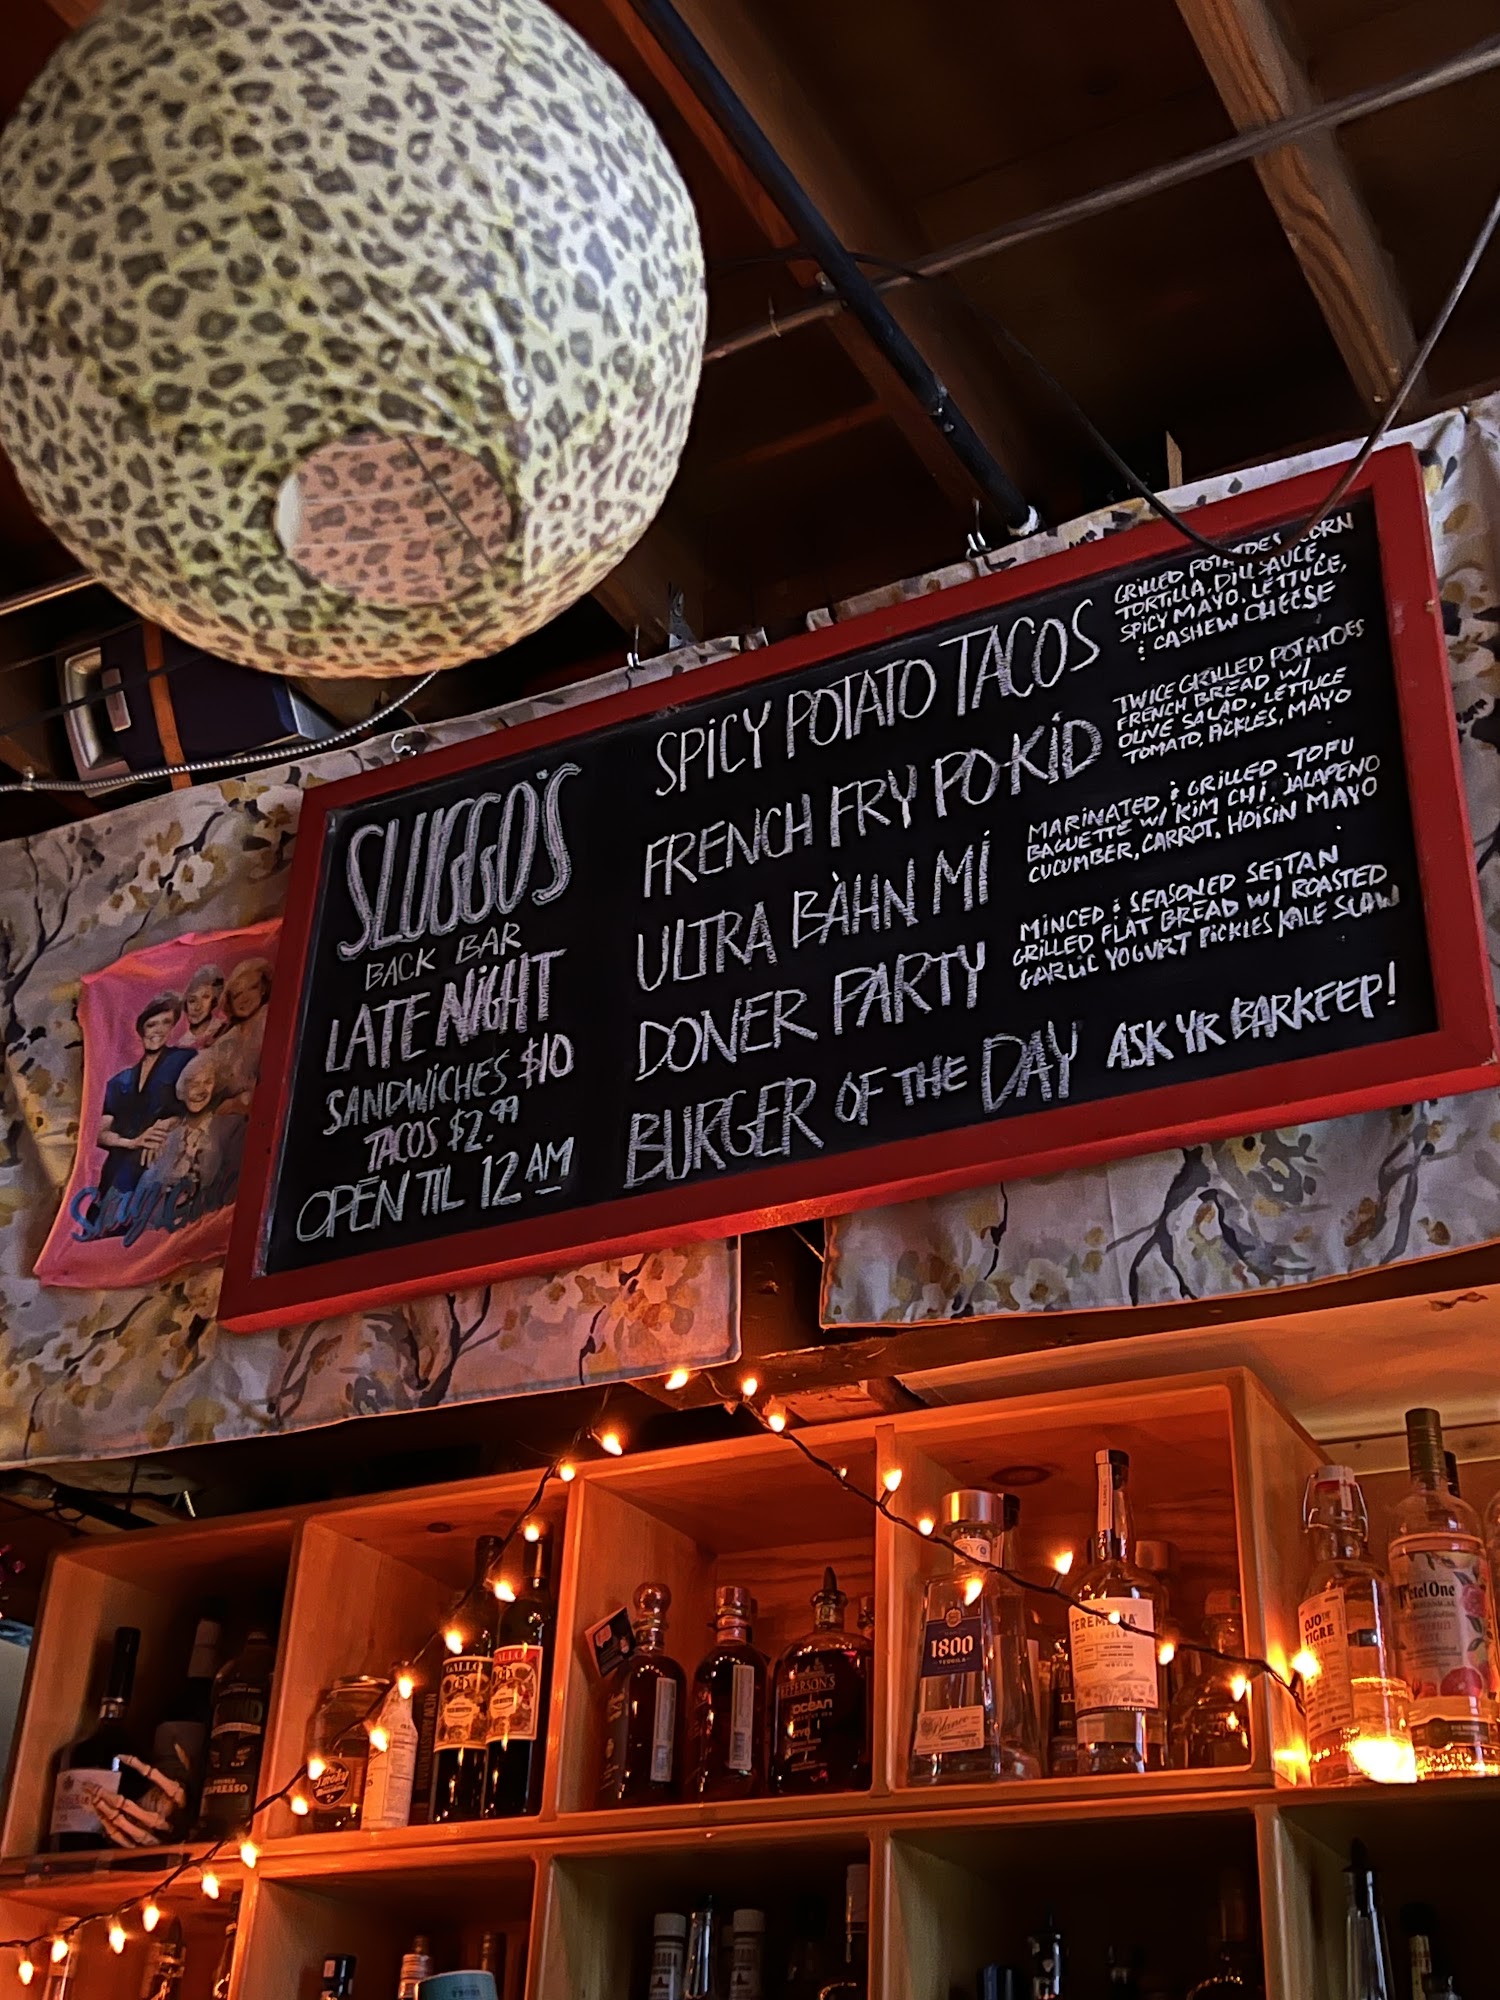 SLUGGO'S
BACK BAR
LATE NIGHT
SANDWICHES $10
TACOS $2.99
OPEN TIL 12 AM
SPICY POTATO TACOS
GRILLED POTATOES CORN
TORTILLA, DILL SAUCE,
SPICY MAYO. LETTUCE,
& CASHEW CHEESE
FRENCH FRY PO-KID
TWICE GRILLED POTATOES
FRENCH BREAD W/
OLIVE SALAD, LETTUCE
TOMATO, PICKLES, MAYO
ULTRA BÀHN MÍ
MARINATED & GRILLED TOFU
BAGUETTE W/ KIM CHI. JALAPENO
CUCUMBER, CARROT, HOISIN MAYO
DONER PARTY
MINCED & SEASONED SEITAN
GRILLED FLAT BREAD W/ ROASTED
GARLIC YOGURT PICKLES KALE SLAW
BURGER OF THE DAY
ASK YR BARKEEP!
Stay
GALLO
GALLO
ESPRESSO
OCEAN
1800
TEQUILA
Blanco
TEREMANA
OJO DE
TIGRE
Ketel One